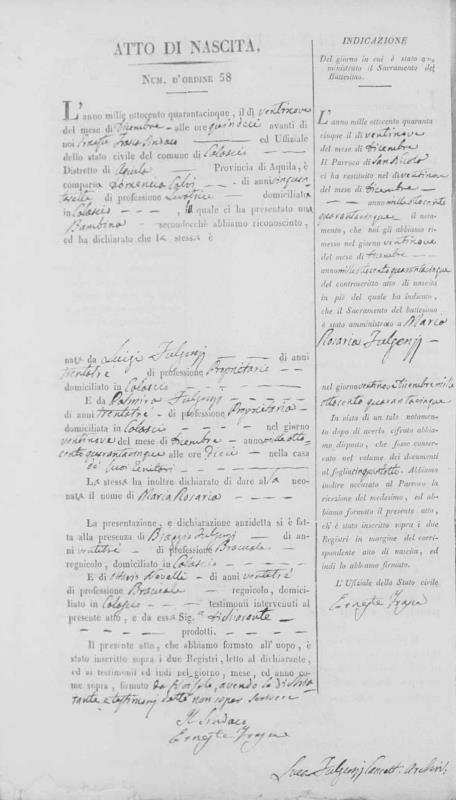 ATTO DI NASCITA.
NUM. D'ORDINE 58
L'anno mille ottocento quarantacinque, il dì ventinove
del mese di Dicembre — alle ore quindeci avanti di
noi Ernesto Sindaco — ed Uffiziale
dello stato civile del comune di
Distretto di Aquila Provincia di Aquila, è
comparsa Domenica — di anni
di professione domiciliata
in — — —, il quale ci ha presentato una
Bambina — secondochè abbiamo riconosciuto,
ed ha dichiarato che la stessa è
nata da Luigi Fulgenzj — di anni
trentotre di professione Proprietario —
domiciliato in
E da Palmira Fulgenzj — — —
di anni trentotre — di professione Proprietaria —
domiciliata in — — — nel giorno
ventinove del mese di Dicembre — anno mille otto-
cento quarantacinque alle ore Dieci — nella casa
di suoi Genitori — — — —
LA stessa ha inoltre dichiarato di dare alla neo-
nata il nome di Maria Rosaria — — —
La presentazione, e dichiarazione anzidetta si è fat-
ta alla presenza di Biaggio Fulgenzj — di an-
ni ventitrè — di professione Bracciale —
regnicolo, domiciliato in
E di Novelli — di anni ventitrè
di professione Bracciale — regnicolo, domici-
liato in — — testimonii intervenuti al
presente atto, e da essa Sig.ª dichiarante —
— — — — prodotti. — — —
Il presente atto, che abbiamo formato all'uopo, è
stato inscritto sopra i due Registri, letto al dichiarante,
ed ai testimonii ed indi nel giorno, mese, ed anno co-
me sopra, firmato da noi solo, avendo la dichia-
rante e testimonj detto non saper scrivere
Il Sindaco
Ernesto
INDICAZIONE
Del giorno in cui è stato am-
ministrato il Sacramento del
Battesimo.
L'anno mille ottocento quaranta
cinque il dì ventinove
del mese di Dicembre
Il Parroco di San Nicola
ci ha restituito nel dì ventinove
del mese di Dicembre —
— anno mille ottocento
quarantacinque il nota-
mento, che noi gli abbiamo ri-
messo nel giorno ventinove
del mese di Dicembre —
anno mille ottocento quarantacinque
del controscritto atto di nascita
in piè del quale ha indicato,
che il Sacramento del battesimo
è stato amministrato a Maria
Rosaria Fulgenzj —
nel giorno ventinove Dicembre mille
ottocento quarantacinque
In vista di un tale notamento
dopo di averlo cifrato abbia-
mo disposto, che fosse conser-
vato nel volume dei documenti
al foglio cinquantotto. Abbiamo
indire accusato al Parroco la
ricezione del medesimo, ed ab-
biamo formato il presente atto,
ch'è stato inscritto sopra i due
Registri in margine del corri-
spondente atto di nascita, ed
indi lo abbiamo firmato.
L'Ufiziale dello Stato civile
Ernesto
Fulgenzj